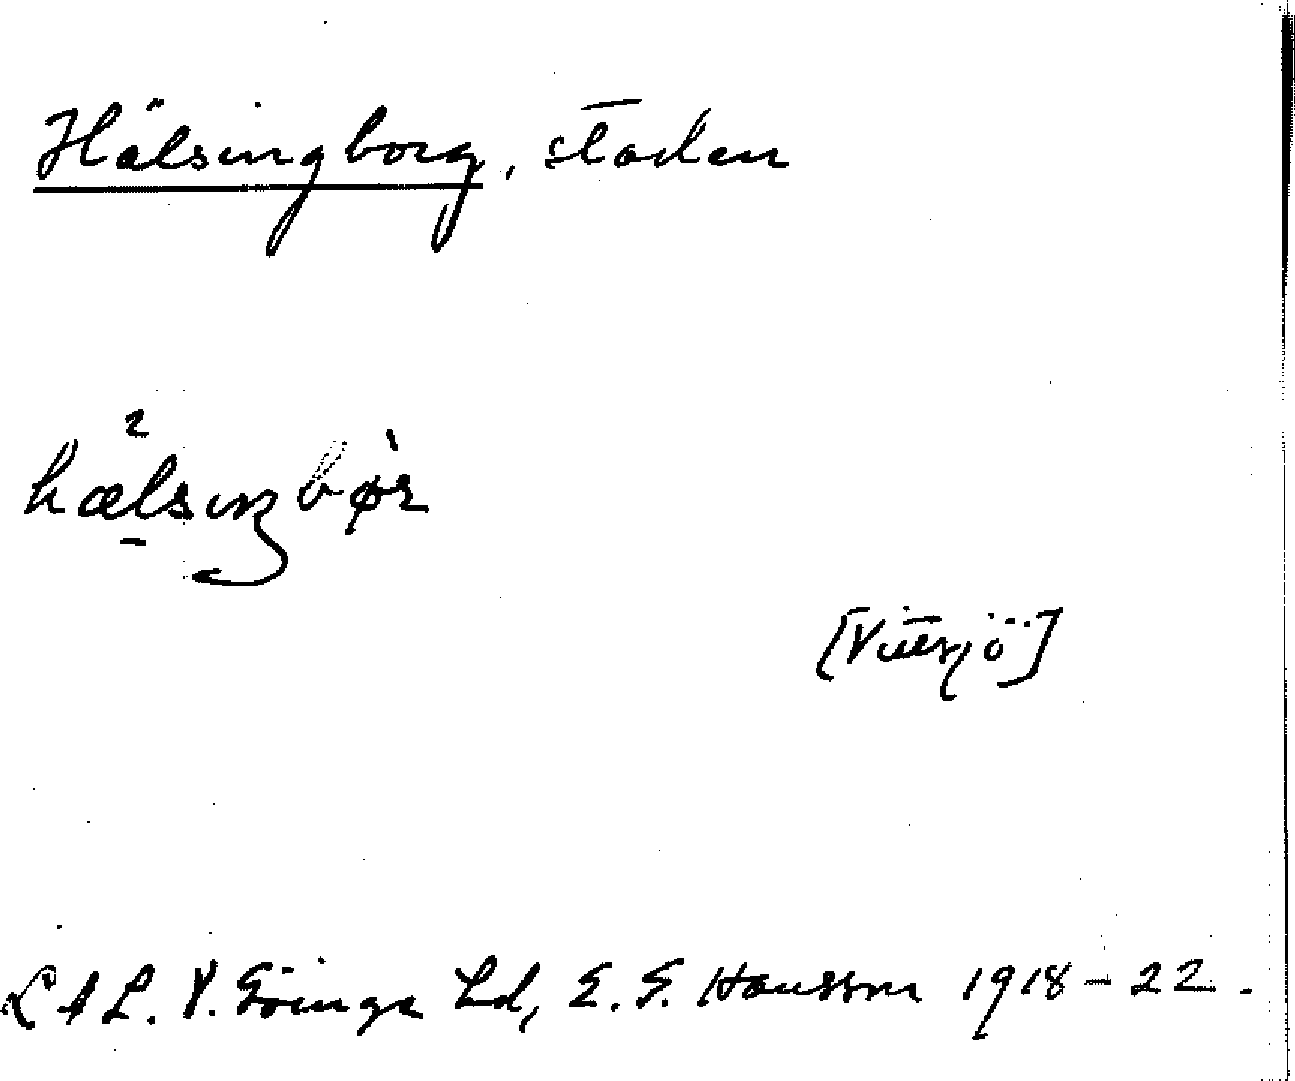 Hälsingborg, staden
hælsiŋbør
[Vittsjö]
LAL. V. Göinge hd, E. G. Hansson 1918-22.